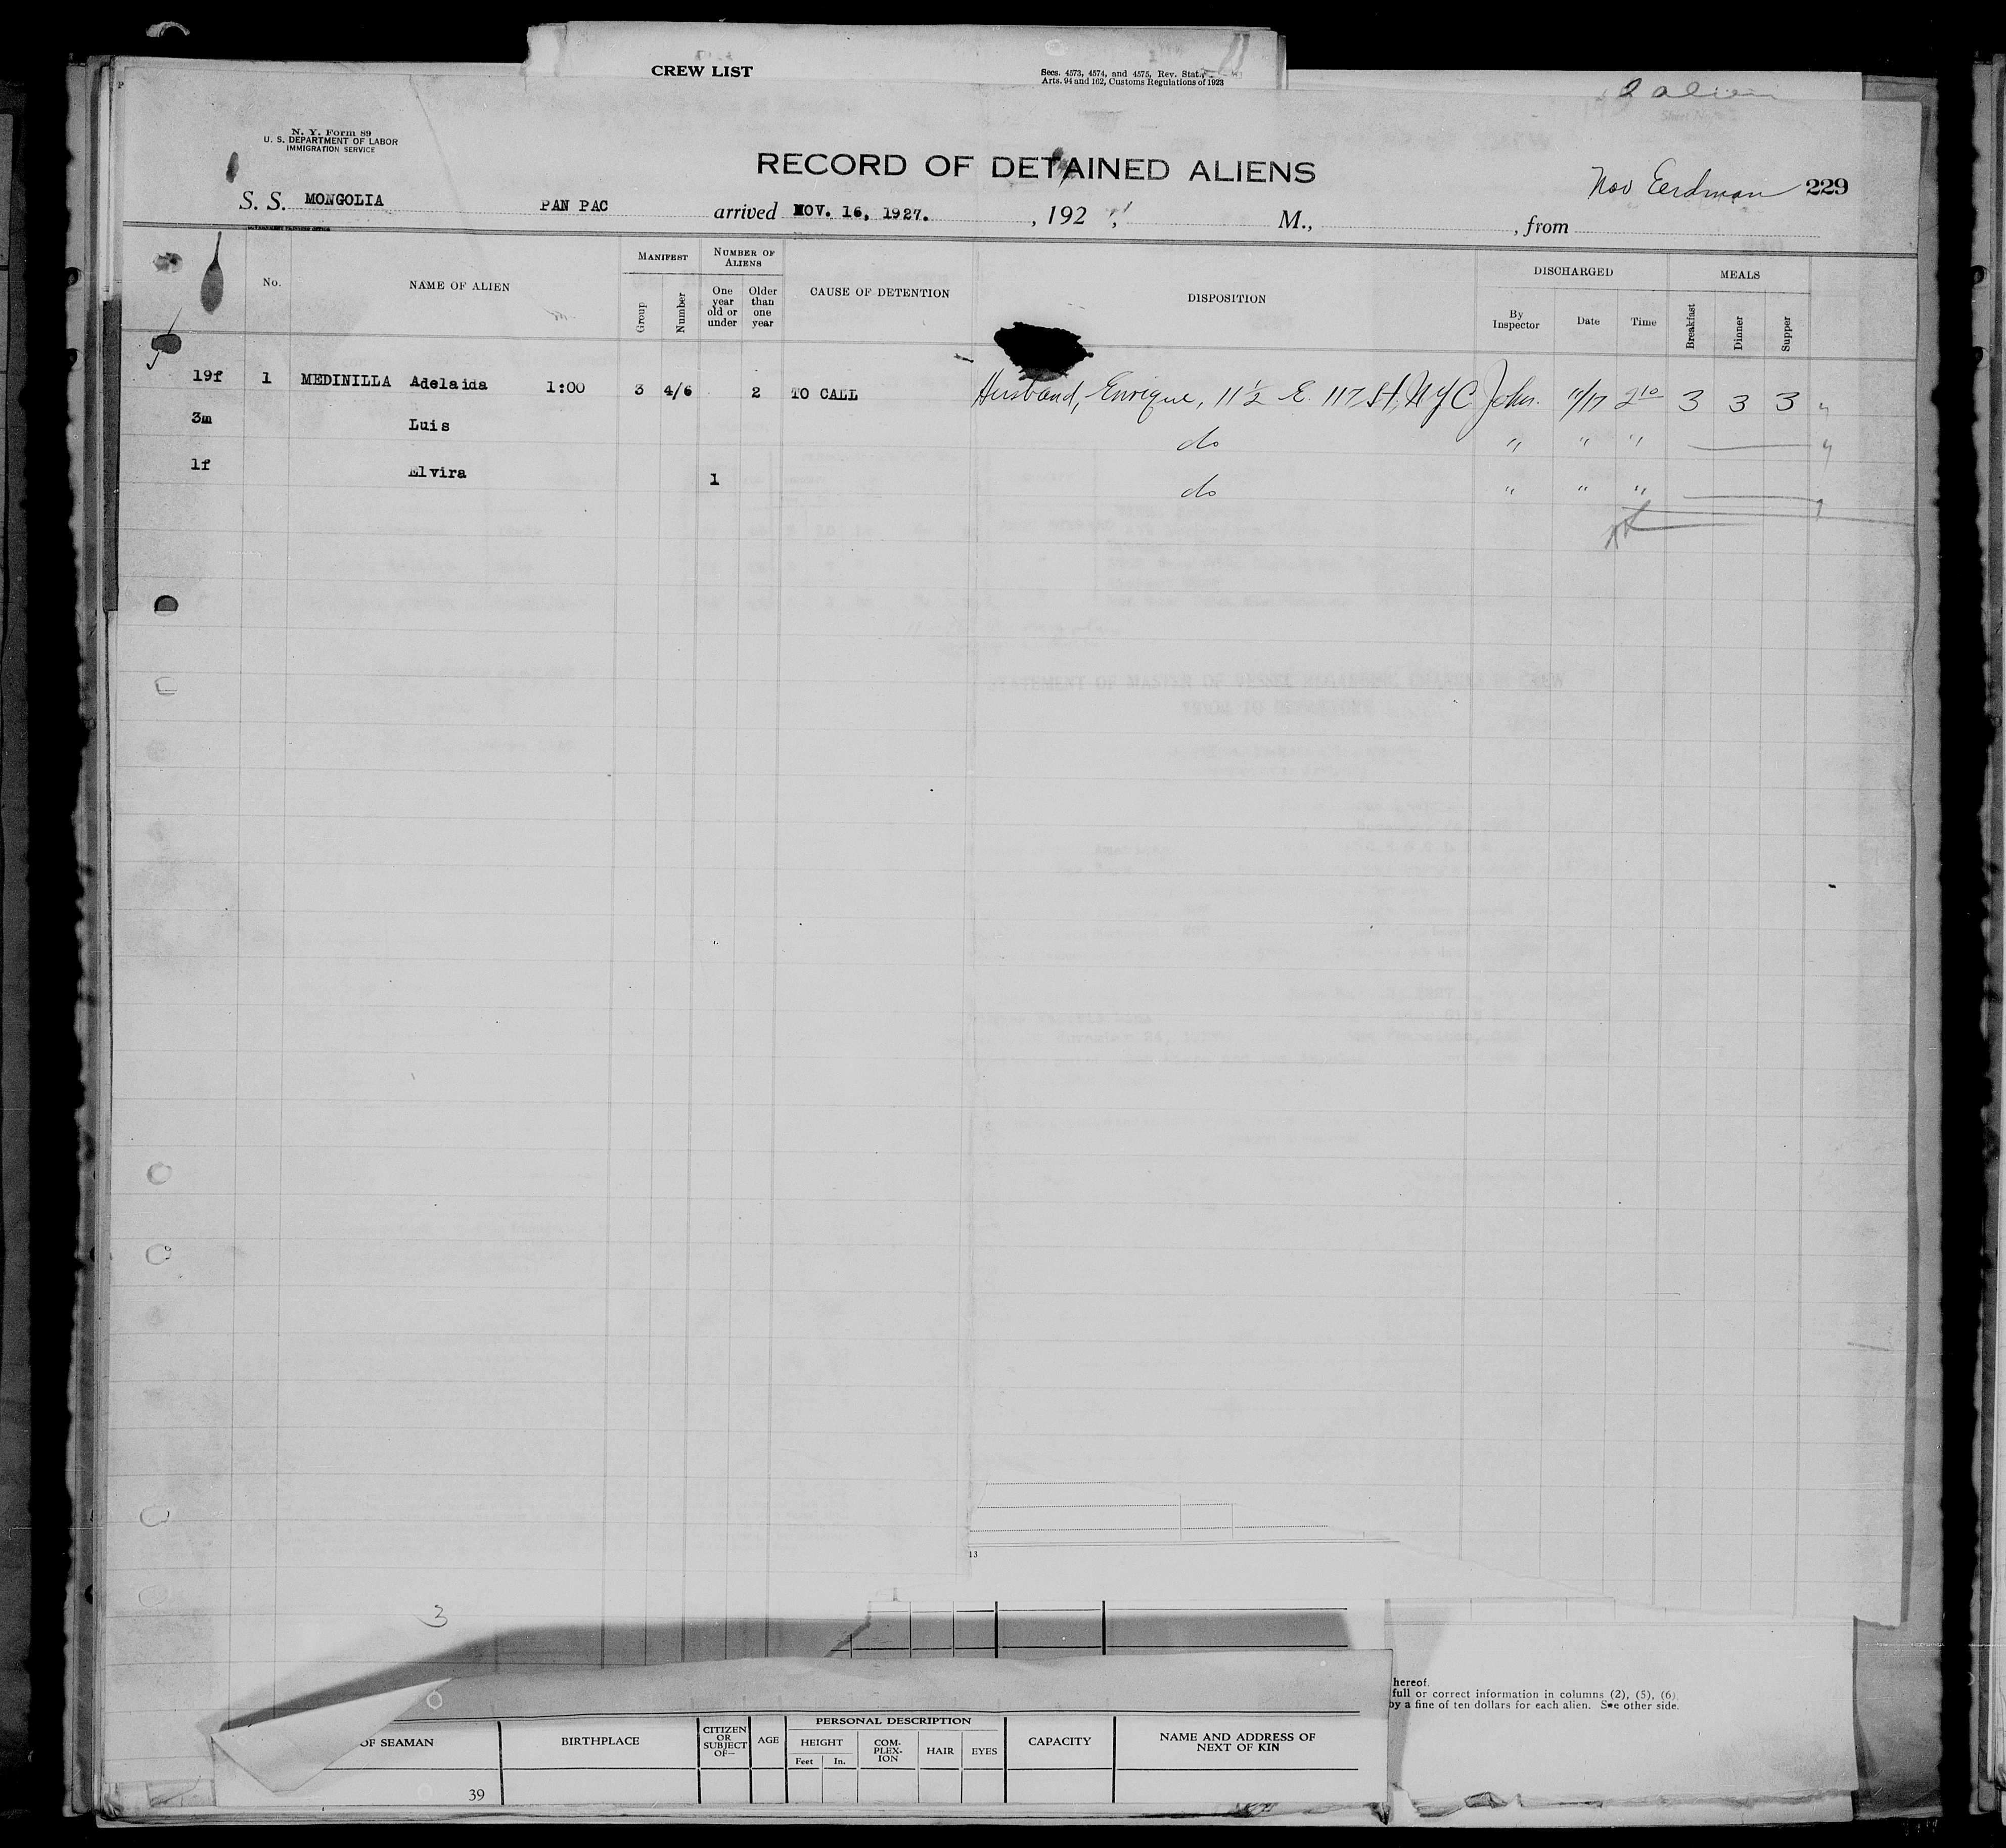 CREW LIST
Secs. 4573, 4574, and 4575, Rev. Stat.,
Arts. 94 and 162, Customs Regulations of 1923
alien
N. Y. Form 89
U. S. DEPARTMENT OF LABOR
IMMIGRATION SERVICE
RECORD OF DETAINED ALIENS
Nov Eerdman 229
S. S. MONGOLIA PAN PAC arrived NOV. 16, 1927. , 192 M., , from
No. NAME OF ALIEN MANIFEST Group Number NUMBER OF ALIENS One year old or under Older than one year CAUSE OF DETENTION DISPOSITION DISCHARGED By Inspector Date Time MEALS Breakfast Dinner Supper
19f 1 MEDINILLA Adelaida 1:00 3 4/6 2 TO CALL Husband, Enrique, 11 1/2 E. 117 St, NYC John. 11/17 2 10 3 3 3
3m Luis do " " "
1f Elvira 1 do " " "
13
3
hereof.
full or correct information in columns (2), (5), (6)
by a fine of ten dollars for each alien. See other side.
OF SEAMAN BIRTHPLACE CITIZEN OR SUBJECT OF— AGE PERSONAL DESCRIPTION HEIGHT Feet In. COM-PLEX-ION HAIR EYES CAPACITY NAME AND ADDRESS OF NEXT OF KIN
39